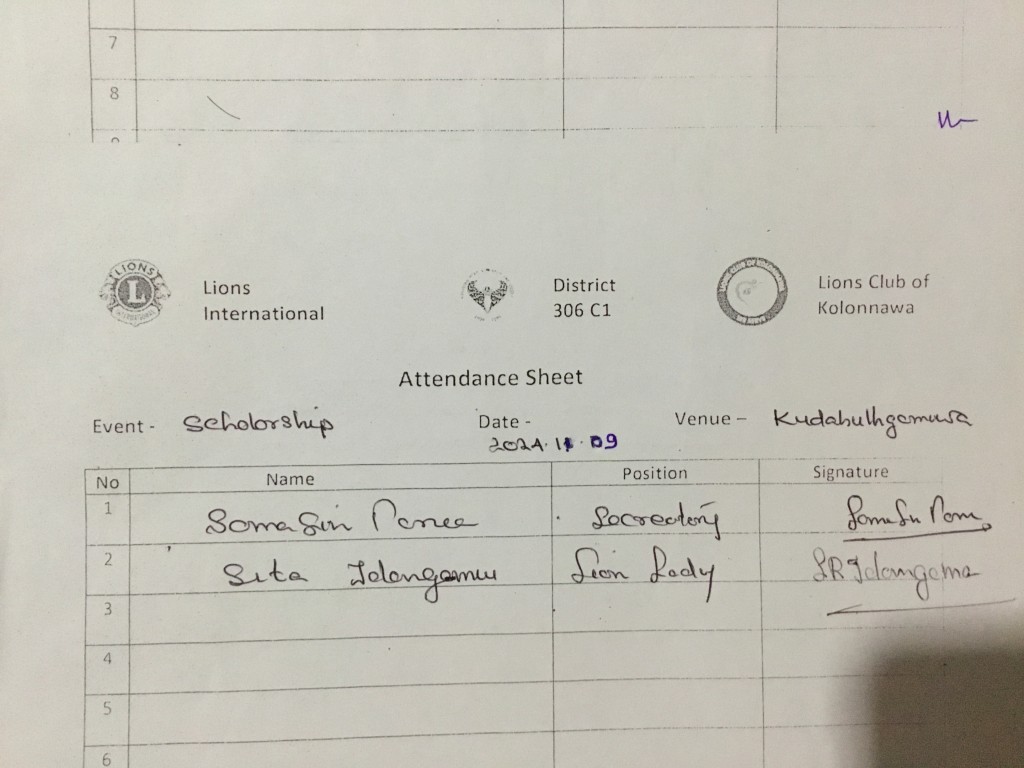 7
8
LIONS
L
INTERNATIONAL
Lions
International
District
306 C1
Lions Club of
Kolonnawa
Attendance Sheet
Event - Scholorship
Date -
2024.11.09
Venue - Kudabuthgamuwa
No Name Position Signature
1 Secreatery
2 Sita Idangamu Lion Lady SR Idamgama
3
4
5
6